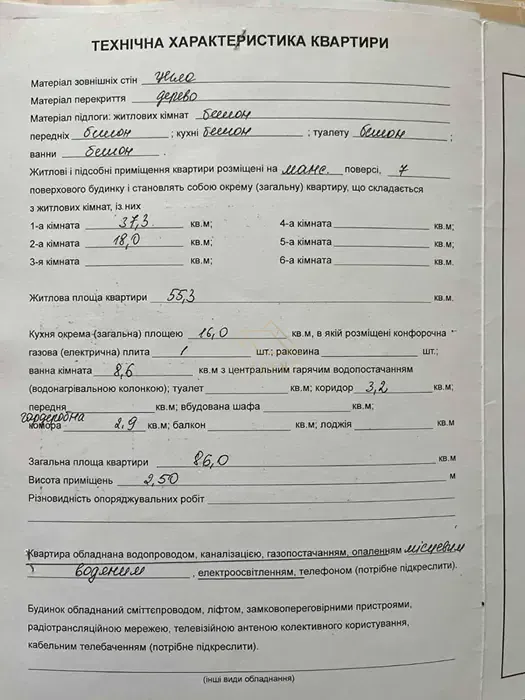 ТЕХНІЧНА ХАРАКТЕРИСТИКА КВАРТИРИ
Матеріал зовнішніх стін цегла
Матеріал перекриття дерево
Матеріал підлоги: житлових кімнат бетон
передніх бетон ; кухні бетон ; туалету бетон ;
ванни бетон .
Житлові і підсобні приміщення квартири розміщені на манс. поверсі, 7
поверхового будинку і становлять собою окрему (загальну) квартиру, що складається
з житлових кімнат, із них
1-а кімната 37,3 кв.м; 4-а кімната кв.м;
2-а кімната 18,0 кв.м; 5-а кімната кв.м;
3-я кімната кв.м; 6-а кімната кв.м.
Житлова площа квартири 55,3 кв.м.
Кухня окрема (загальна) площею 16,0 кв.м, в якій розміщені конфорочна
газова (електрична) плита 1 шт.; раковина шт.;
ванна кімната 8,6 кв.м з центральним гарячим водопостачанням
(водонагрівальною колонкою); туалет кв.м; коридор 3,2 кв.м;
передня кв.м; вбудована шафа кв.м;
гардеробна
комора 2,9 кв.м; балкон кв.м; лоджія кв.м
Загальна площа квартири 86,0 кв.м
Висота приміщень 2,50 м
Різновидність опоряджувальних робіт
Квартира обладнана водопроводом, каналізацією, газопостачанням, опаленням місцевим
водяним , електроосвітленням, телефоном (потрібне підкреслити).
Будинок обладнаний сміттєпроводом, ліфтом, замковопереговірними пристроями,
радіотрансляційною мережею, телевізійною антеною колективного користування,
кабельним телебаченням (потрібне підкреслити).
(інші види обладнання)